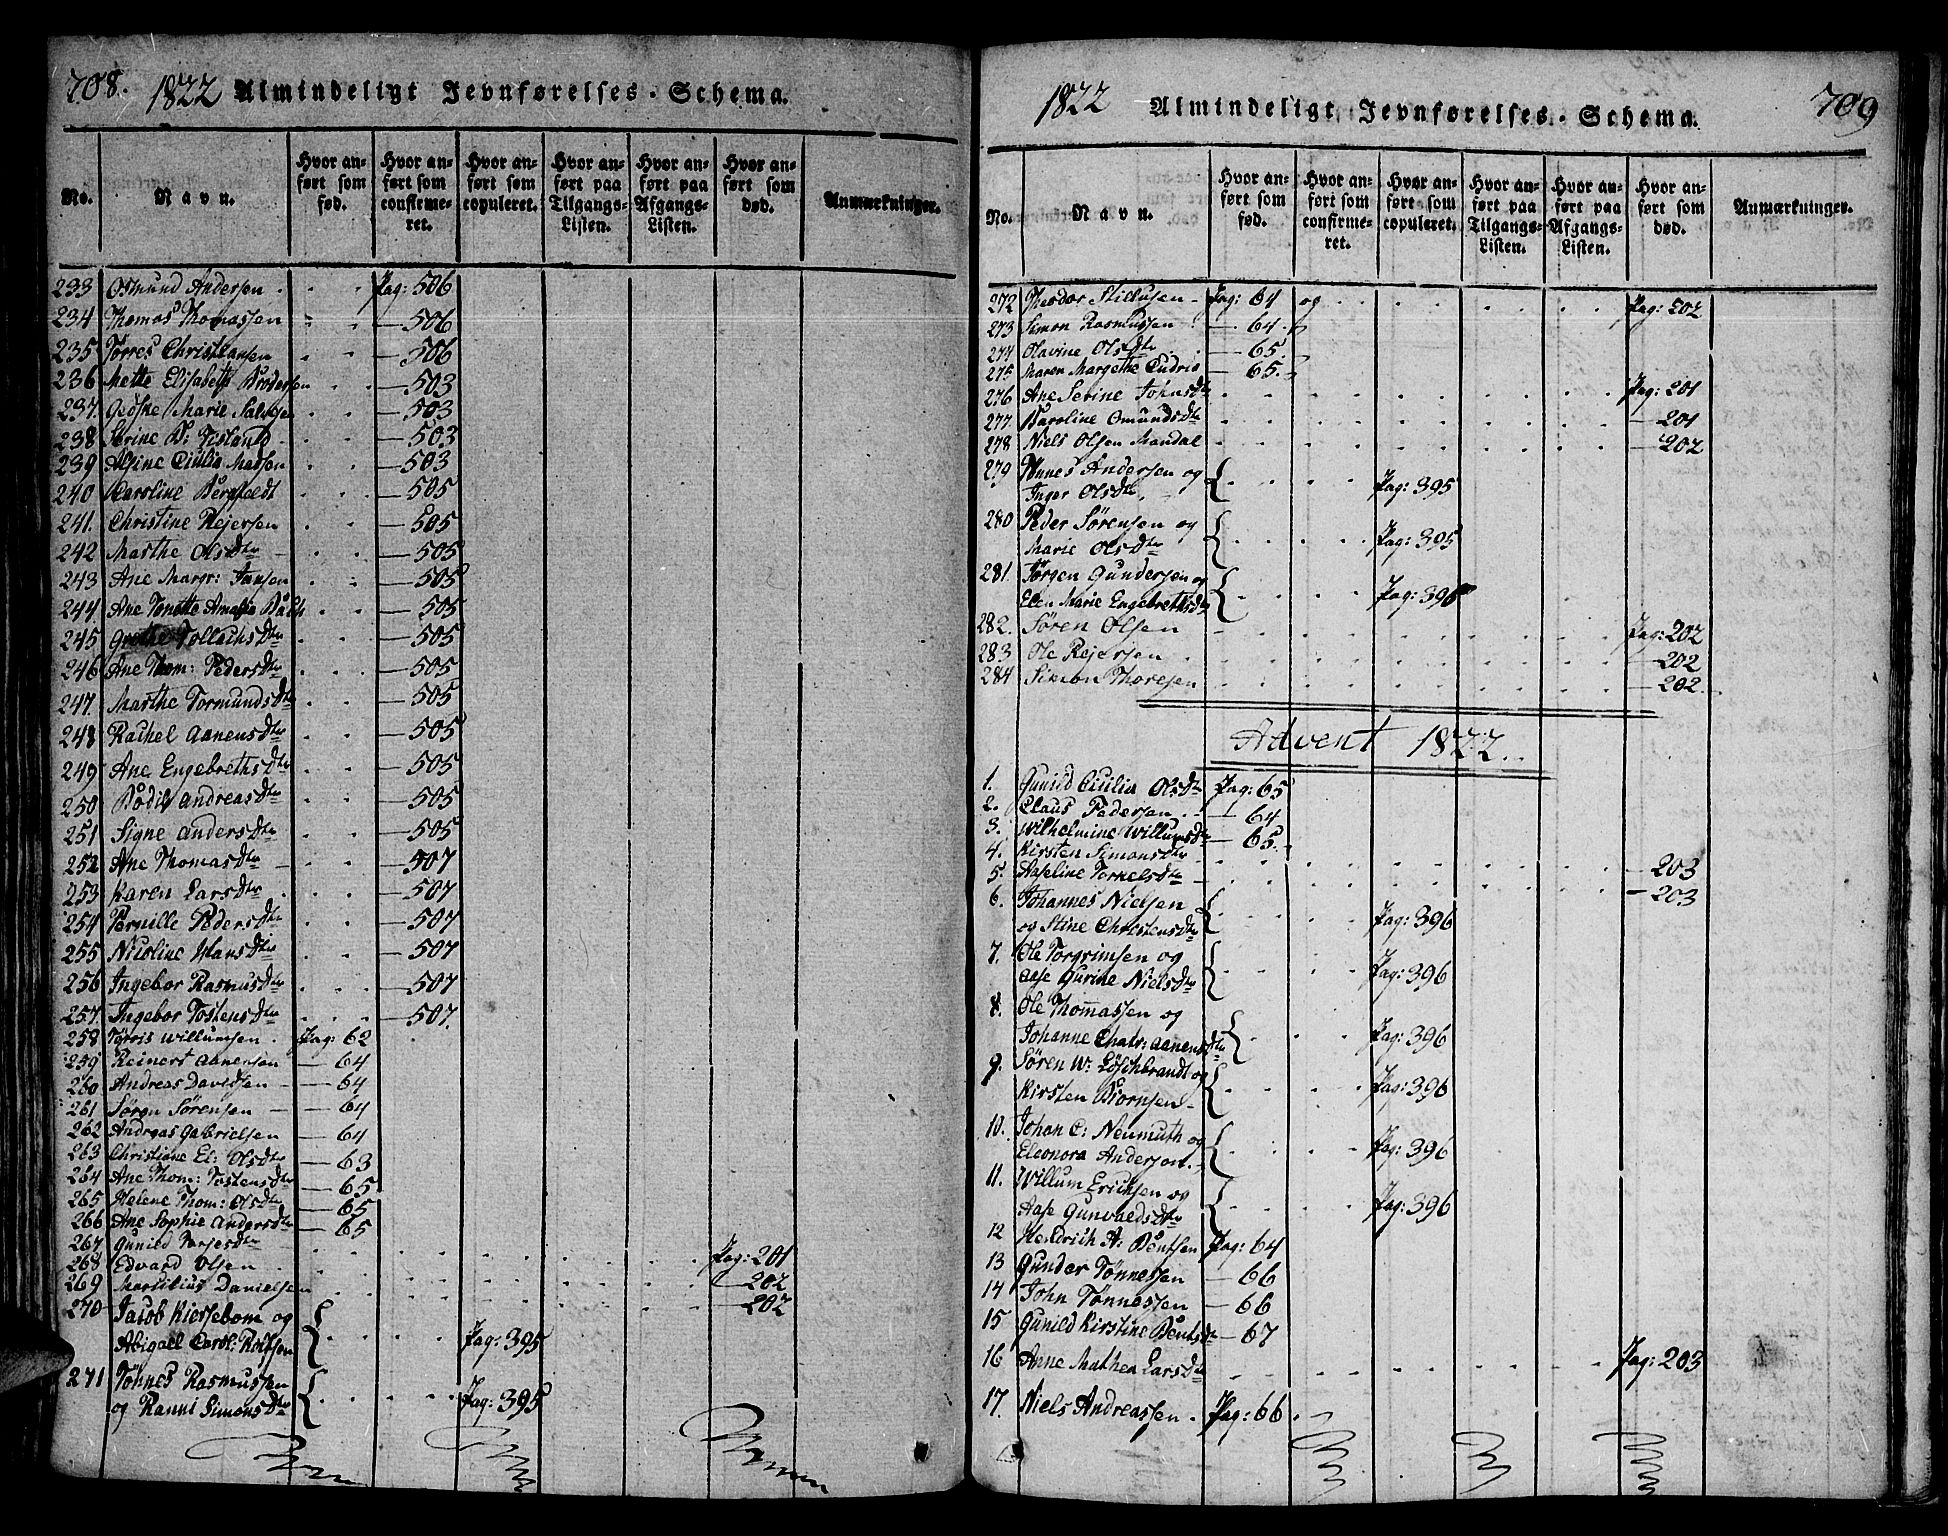 708. 1822 Almindeligt Jevnførelses-Schema.
No. Navn. Hvor anført som fød. Hvor anført som confirmeret. Hvor anført som copuleret. Hvor anført paa Tilgangs-Listen. Hvor anført paa Afgangs-Listen. Hvor anført som død. Anmærkninger.
233 Osmund Andersen Pag: 506
234 Thomas Thomassen — 506
235 Torres Christiansen — 506
236 Mette Elisabeth Brodersen — 503
237. Marie — 503
238 Serine B: Tisland — 503
239 Alsine Cicilia Madsen — 503
240 Caroline Bergfeldt — 505
241. Christine Rejersen — 505
242 Marthe Olsdtr — 505
243 Ane Margr: Jansen — 505
244 Ane Tonette Amalia — 505
245 Grethe Tollachsdtr — 505
246 Ane Thom: Pedersdtr — 505
247. Marthe Tormundsdtr — 505
248 Rachel Aanensdtr — 505
249 Ane Engebrethsdtr — 505
250 Bodil Andreasdtr — 505
251 Signe Andersdtr — 505
252 Ane Thomasdtr — 507
253 Karen Larsdtr — 507
254 Pernille Pedersdtr — 507
255 Nicoline Hansdtr — 507
256 Ingebor Rasmusdtr — 507
257. Ingebor Tostensdtr — 507.
258 Willumsen Pag: 62
259 Reinert Aanensen — 64
260 Andreas Davidsen — 64
261 Søren Sørensen — 64
262 Andreas Gabrielsen — 64
263 Christiane El: Olsdtr — 63
264 Ane Thom: Tostensdtr — 65
265 Helene Thom: Olsdtr — 65
266 Ane Sophie Andersdtr — 65
267 Gunild Tarjesdtr Pag: 201
268 Edvard Olsen — 202
269 Marsilius Danielsen — 202
270 Jacob Kiessebom og
Abigael Carol: Pag: 395
271 Tönnes Rasmussen
og Ranni Simonsdtr Pag: 395
1822 Almindeligt Jevnførelses-Schema. 709
No. Navn. Hvor anført som fød. Hvor anført som confirmeret. Hvor anført som copuleret. Hvor anført paa Tilgangs-Listen. Hvor anført paa Afgangs-Listen. Hvor anført som død. Anmærkninger.
272 Theodor Stillusen Pag: 64 og Pag: 202
273 Simon Rasmussen — 64.
274 Olavine Olsdtr — 65.
275 Maren Margethe — 65.
276 Ane Serine Johnsdtr Pag: 201
277. Karoline Omundsdtr — 201
278 Niels Olsen Mandal — 202
279 Andersen og
Inger Olsdtr Pag: 395
280 Peder Sörensen og
Marie Olsdtr Pag: 395
281. Jörgen Gundersen og
Elen Marie Engebrethsdtr Pag: 396
282. Sören Olsen Pag: 202
283 Ole Rejersen — 202
284 Simon Thoresen — 202.
Advent 1822.
1. Gunild Cicilia Olsdtr Pag: 65
2. Claus Pedersen — 64
3. Wilhelmine Willumsdtr — 65.
4. Kirsten Simonsdtr — 203
5. Aaseline Torkelsdtr — 203
6. Johannes Nielsen
og Stine Christensdtr Pag: 396
7. Ole Torgrimsen og
Aase Gurine Nielsdtr Pag: 396
8. Ole Thomassen og
Johanne Chatr: Aanensdtr Pag: 396
9. Sören W: Löschbrandt og
Kirsten Biornsen Pag: 396
10. Johan C: Neumuth og
Eleonora Andersen Pag: 396
11. Willum Ericksen og
Aase Gunvaldsdtr Pag: 396
12 Hendrich A: Bentsen Pag: 64
13 Gunder Tönnessen — 66
14 John Tönnessen — 66
15 Gunild Kirstine Bentsdtr — 67
16 Anne Mathea Larsdtr Pag: 203
17. Niels Andreassen Pag: 66